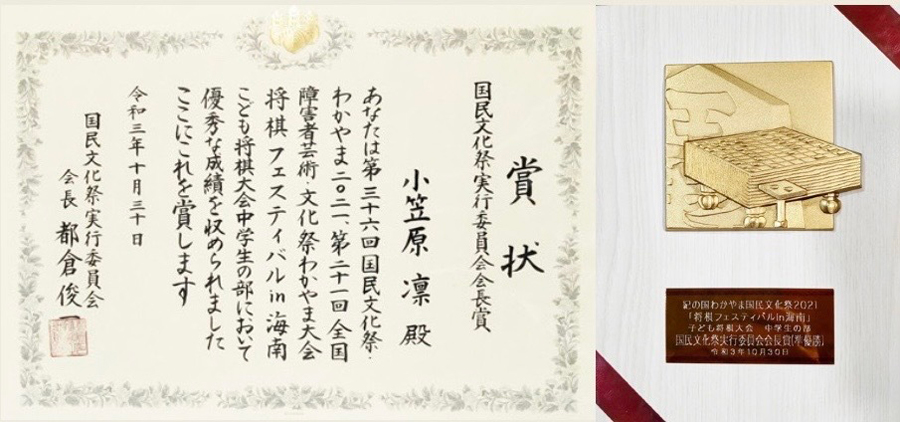 賞状
国民文化祭実行委員会会長賞
小笠原 凛 殿
あなたは第三十六回国民文化祭・
わかやま二〇二一、第二十一回全国
障害者芸術・文化祭わかやま大会
将棋フェスティバルin海南
こども将棋大会中学生の部において
優秀な成績を収められました
ここにこれを賞します
令和三年十月三十日
国民文化祭実行委員会
会長 都倉俊一
紀の国わかやま国民文化祭2021
「将棋フェスティバルin海南」
子ども将棋大会 中学生の部
国民文化祭実行委員会会長賞[準優勝]
令和3年10月30日